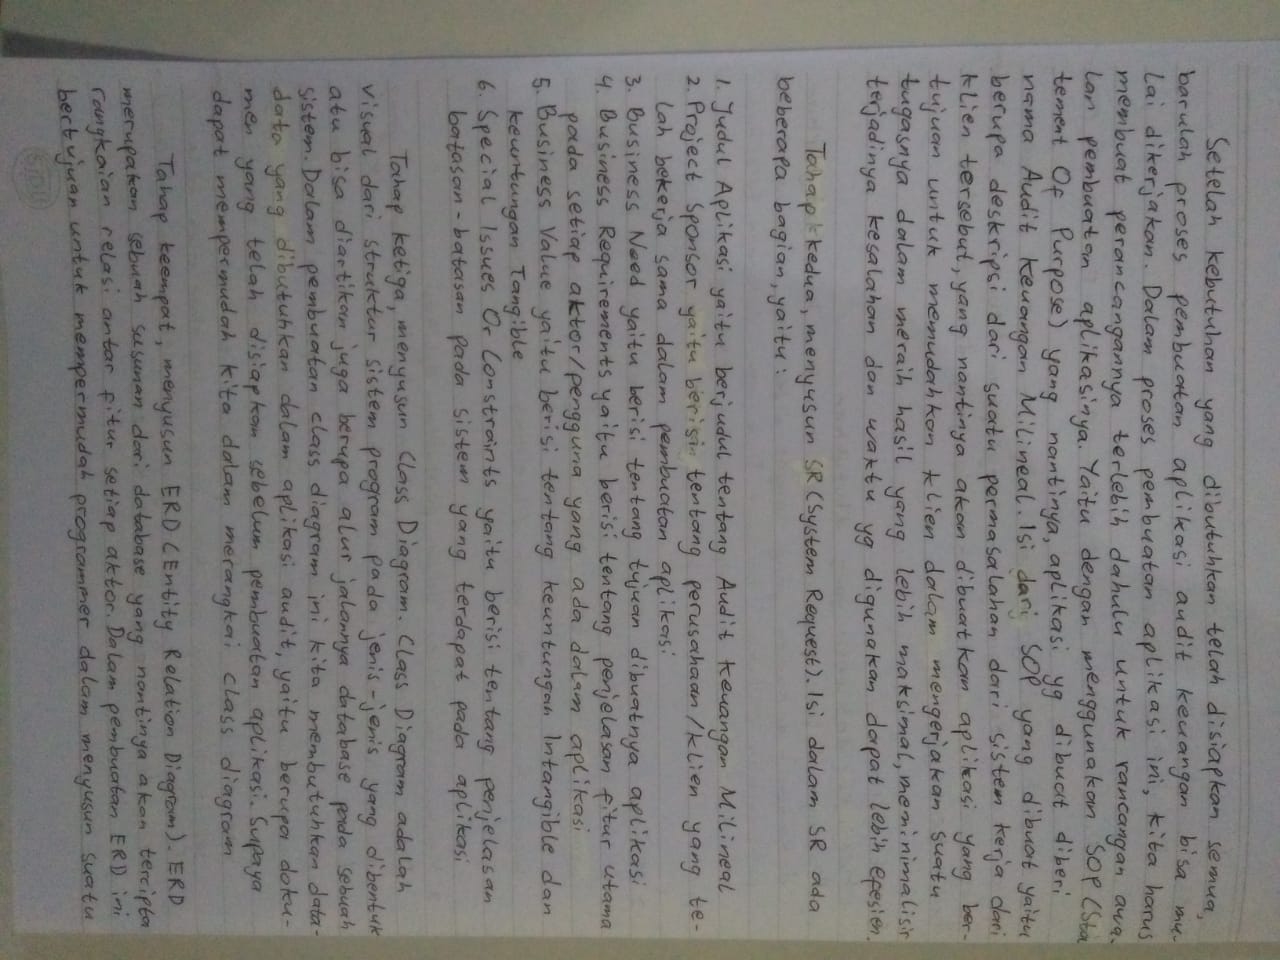 Setelah kebutuhan yang dibutuhkan telah disiapkan semua,
barulah proses pembuatan aplikasi audit keuangan bisa mu-
lai dikerjakan. Dalam proses pembuatan aplikasi ini, kita harus
membuat perancangannya terlebih dahulu untuk rancangan awa-
lan pembuatan aplikasinya. Yaitu dengan menggunakan SOP (Sta
tement Of Purpose) yang nantinya, aplikasi yg dibuat diberi
nama Audit Keuangan Milineal. Isi dari SOP yang dibuat yaitu
berupa deskripsi dari suatu permasalahan dari sistem kerja dari
klien tersebut, yang nantinya akan dibuatkan aplikasi yang ber-
tujuan untuk memudahkan klien dalam mengerjakan suatu
tugasnya dalam meraih hasil yang lebih maksimal, meminimalisir
terjadinya kesalahan dan waktu yg digunakan dapat lebih efesien.
Tahap kedua, menyusun SR (System Request). Isi dalam SR ada
beberapa bagian, yaitu :
1. Judul Aplikasi yaitu berjudul tentang Audit Keuangan Milineal
2. Project Sponsor yaitu berisi tentang perusahaan/klien yang te-
lah bekerja sama dalam pembuatan aplikasi
3. Business Need yaitu berisi tentang tujuan dibuatnya aplikasi
4. Business Requirements yaitu berisi tentang penjelasan fitur utama
pada setiap aktor/pengguna yang ada dalam aplikasi
5. Business Value yaitu berisi tentang keuntungan Intangible dan
keuntungan Tangible
6. Special Issues Or Constraints yaitu berisi tentang penjelasan
batasan-batasan pada sistem yang terdapat pada aplikasi
Tahap ketiga, menyusun Class Diagram. Class Diagram adalah
visual dari struktur sistem program pada jenis-jenis yang dibentuk
atu bisa diartikan juga berupa alur jalannya database pada sebuah
sistem. Dalam pembuatan class diagram ini kita membutuhkan data-
data yang dibutuhkan dalam aplikasi audit, yaitu berupa doku-
men yang telah disiapkan sebelum pembuatan aplikasi. Supaya
dapat mempermudah kita dalam merangkai class diagram
Tahap keempat, menyusun ERD (Entity Relation Diagram). ERD
merupakan sebuah susunan dari database yang nantinya akan tercipta
rangkaian relasi antar fitur setiap aktor. Dalam pembuatan ERD ini
bertujuan untuk mempermudah programmer dalam menyusun suatu